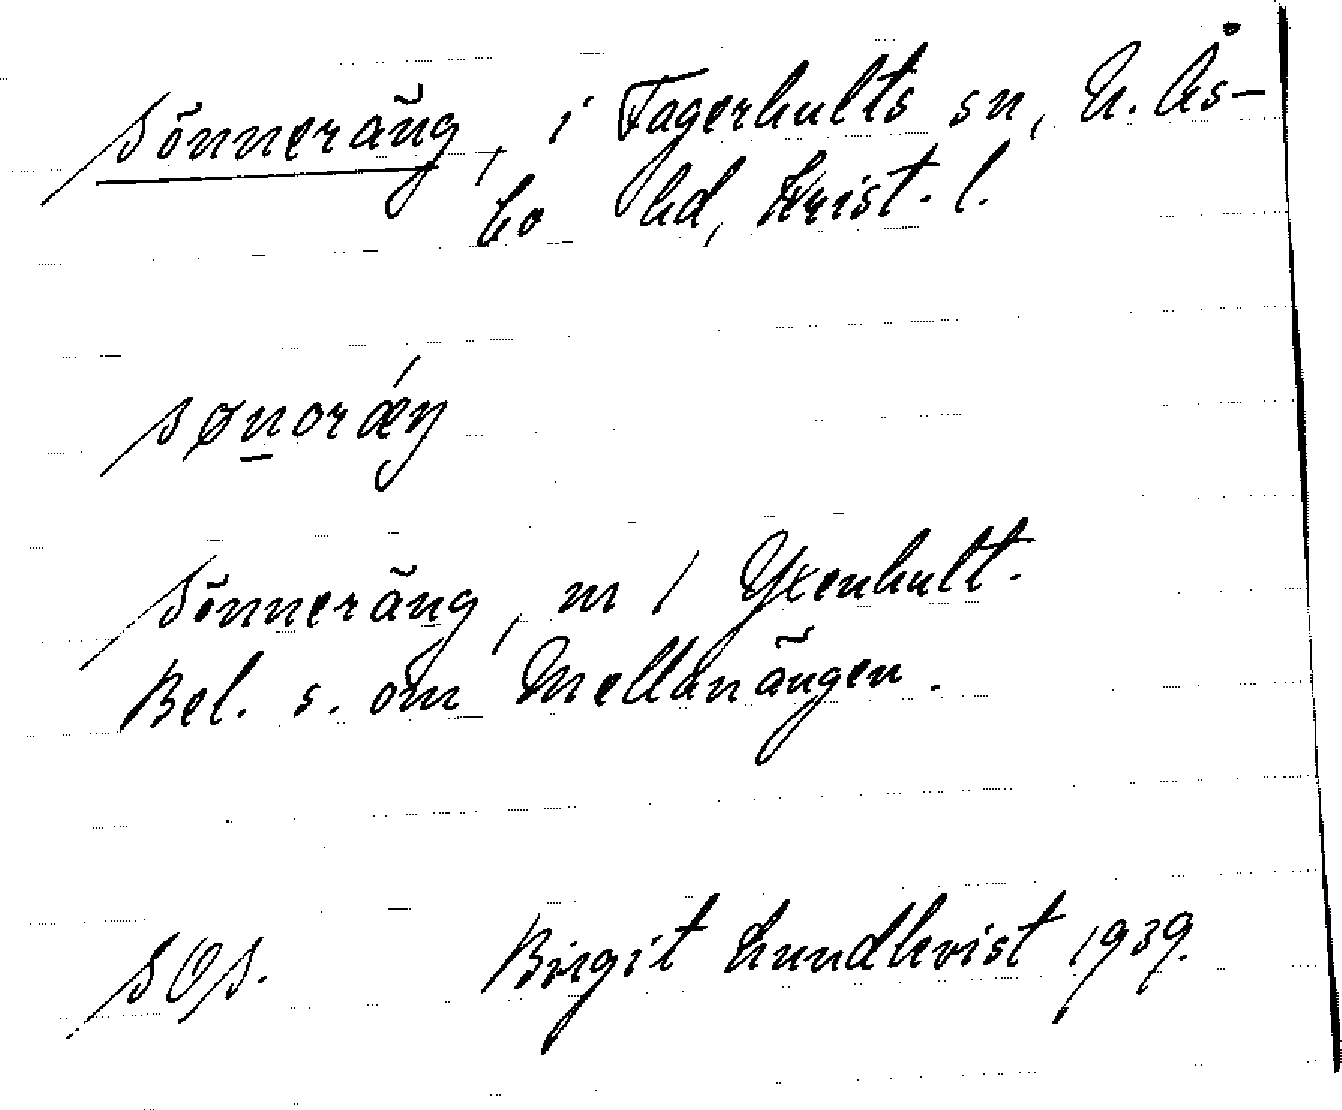 Sönneräng, i Fagerhults sn, N. Ås-
bo hd, Krist. l.
sønoræŋ
Sönneräng, m / Yxenhult.
Bel. s. om Mellanängen.
SOA.
Birgit Lundkvist 1939.